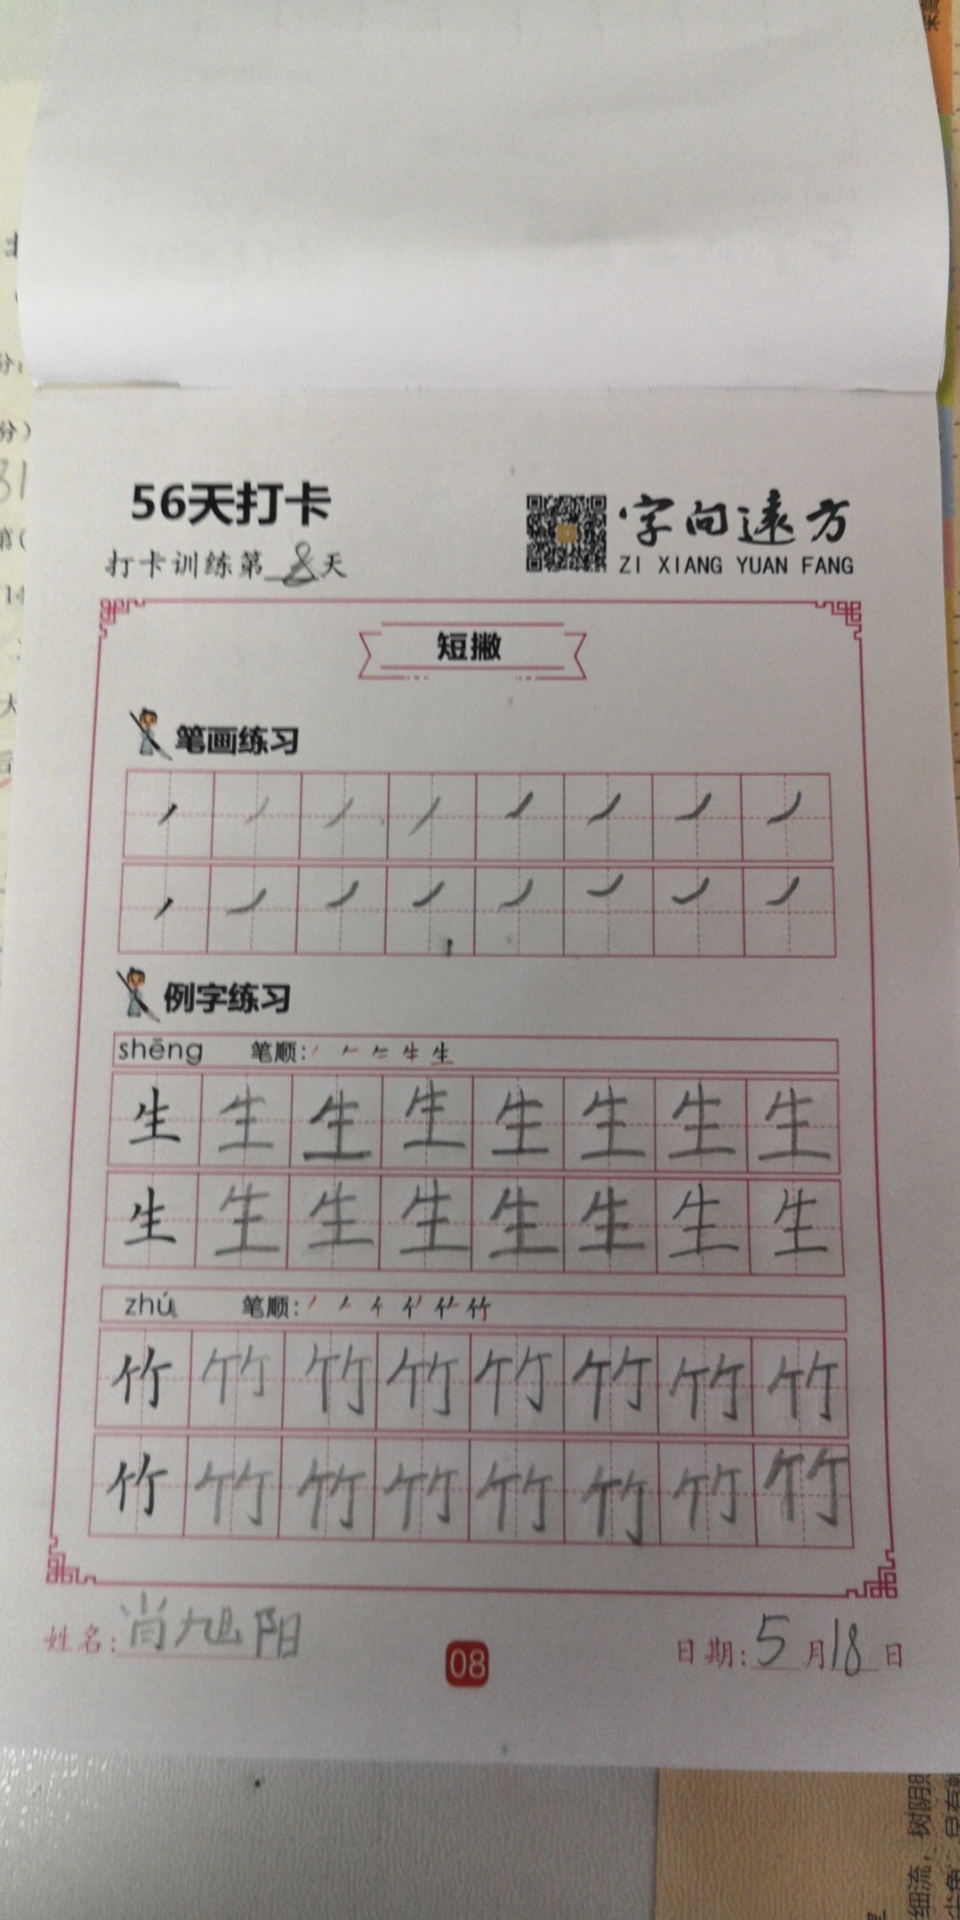 56天打卡
字向遠方
打卡训练第8天
ZI XIANG YUAN FANG
短撇
笔画练习
例字练习
shēng 笔顺: 生
生 生 生 生 生 生 生 生
生 生 生 生 生 生 生 生
zhú 笔顺: 竹
竹 竹 竹 竹 竹 竹 竹 竹
竹 竹 竹 竹 竹 竹 竹 竹
姓名: 肖旭阳
08
日期: 5月18日
细流,树阴照